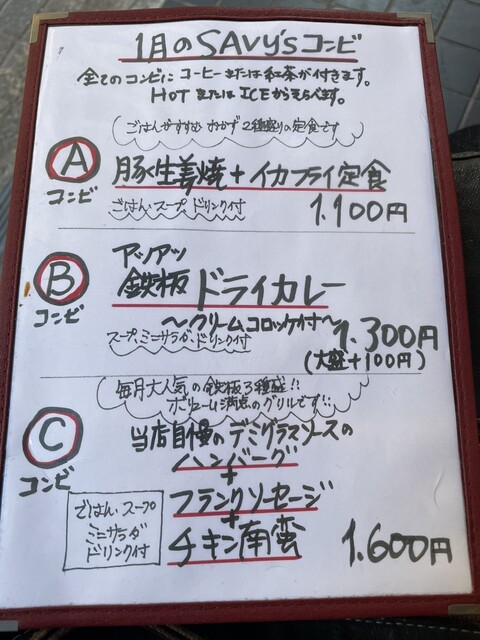 1月のSAVY'sコンビ
全てのコンビにコーヒーまたは紅茶が付きます。
HOTまたはICEからえらべます。
ごはんがすすむおかず2種盛りの定食です
A
コンビ
豚生姜焼+イカフライ定食
ごはん・スープ・ドリンク付
1,100円
B
コンビ
アッツアツ
鉄板ドライカレー
〜クリームコロッケ付〜
スープ、ミニサラダ、ドリンク付
1,300円
(大盛+100円)
毎月大人気の鉄板3種盛!!
ボリューム満点のグリルです!!
C
コンビ
当店自慢のデミグラスソースの
ハンバーグ
+
フランクソーセージ
+
チキン南蛮
ごはん、スープ
ミニサラダ
ドリンク付
1,600円